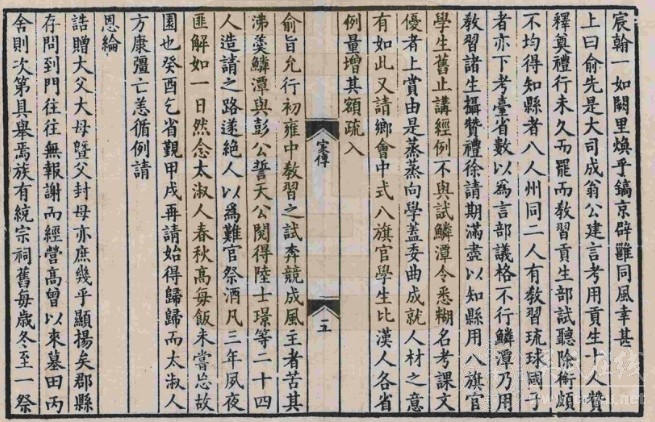 宸翰一如闕里煥乎鎬京辟雝同風幸甚
上曰俞先是大司成翁公建言考用貢生十人贊
釋奠禮行未久而罷而教習貢生部試聽除銜頗
不均得知縣者八人州同二人有教習琉球國子
者亦下考臺省數以為言部議格不行鱗潭乃用
教習諸生攝贊禮徐請期滿盡以知縣用八旗官
學生舊止講經例不與試鱗潭令悉糊名考課文
優者上賞由是蒸蒸向學蓋委曲成就人材之意
有如此又請鄉會中式八旗官學生比漢人各省
例量增其額疏入
家傳
十五
俞旨允行初雍中教習之試奔競成風主者苦其
沸羹鱗潭與彭公誓天公閱得陸士璟等二十四
人造請之路遂絕人以爲難官祭酒凡三年夙夜
匪解如一日然念太淑人春秋高每飯未嘗忘故
園也癸酉乞省覲甲戌再請始得歸歸而太淑人
方康彊亡恙循例請
恩綸
誥贈大父大母曁父封母亦庶幾乎顯揚矣郡縣
存問到門往往無報謝而經營高曾以來墓田丙
舍則次第具舉焉族有統宗祠舊每歲冬至一祭